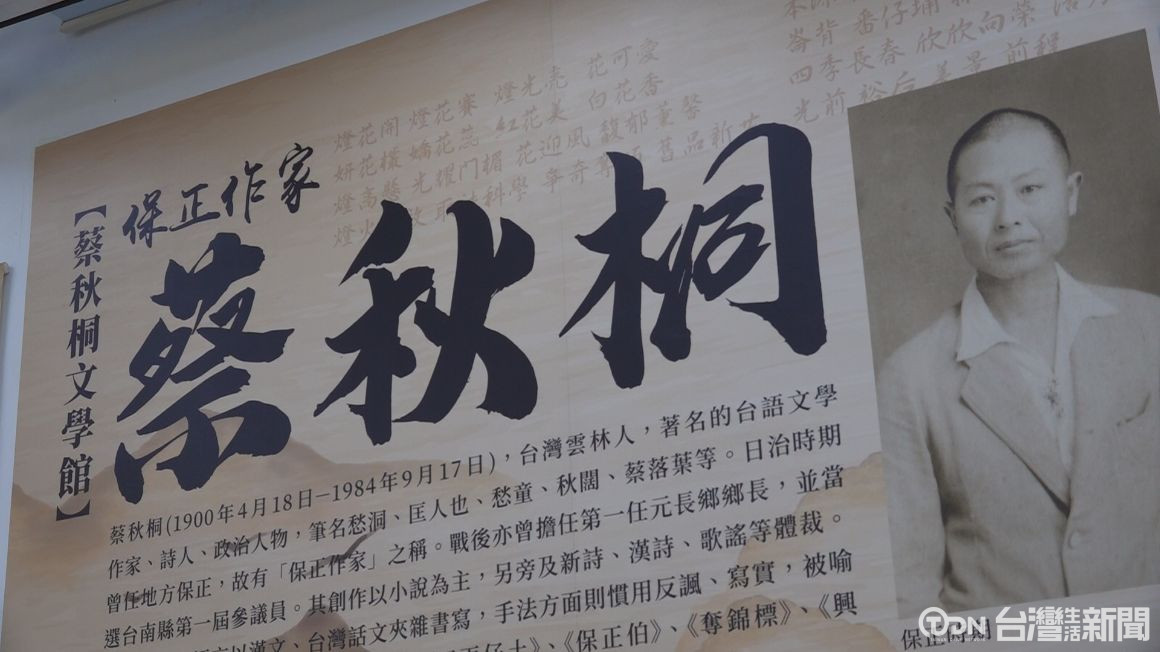 【蔡秋桐文學館】
保正作家
蔡秋桐
燈花開 燈花賽 燈光亮 花可愛
妍花樣 嬌花蕊 紅花美 白花香
燈高 光耀門楣 花迎風 馥郁薰馨
燈火 科學 爭奇 舊品新
崙背 番仔埔
四季長春 欣欣向榮
光前 裕后 美景 前程
蔡秋桐(1900年4月18日—1984年9月17日)，台灣雲林人，著名的台語文學
作家、詩人、政治人物，筆名愁洞、匡人也、愁童、秋闊、蔡落葉等。日治時期
曾任地方保正，故有「保正作家」之稱。戰後亦曾擔任第一任元長鄉鄉長，並當
選台南縣第一屆參議員。其創作以小說為主，另旁及新詩、漢詩、歌謠等體裁。
以漢文、台灣話文夾雜書寫，手法方面則慣用反諷、寫實，被喻
《保正伯》、《奪錦標》、《興
保正時期
TPN 台灣生活新聞